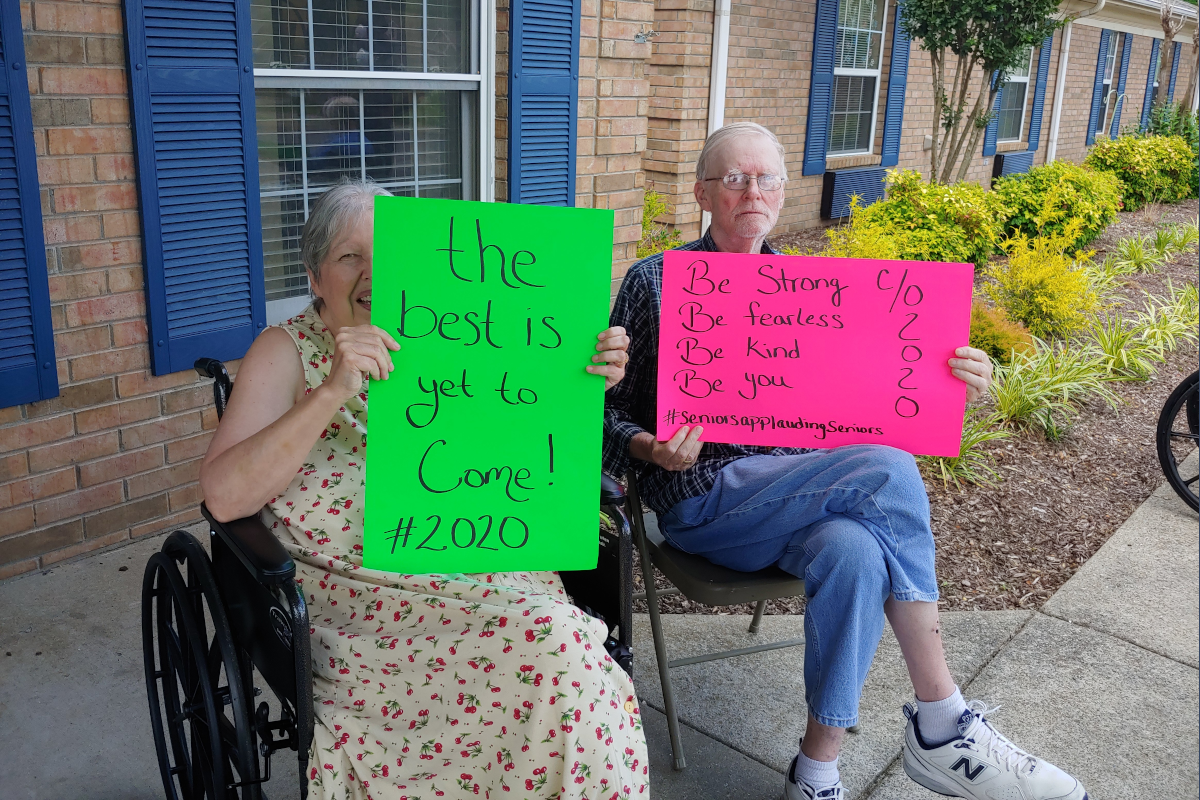 the
best is
yet to
Come!
#2020
Be Strong c/o
Be fearless 2
Be Kind 0
Be you 2
0
#SeniorsapplaudingSeniors
N